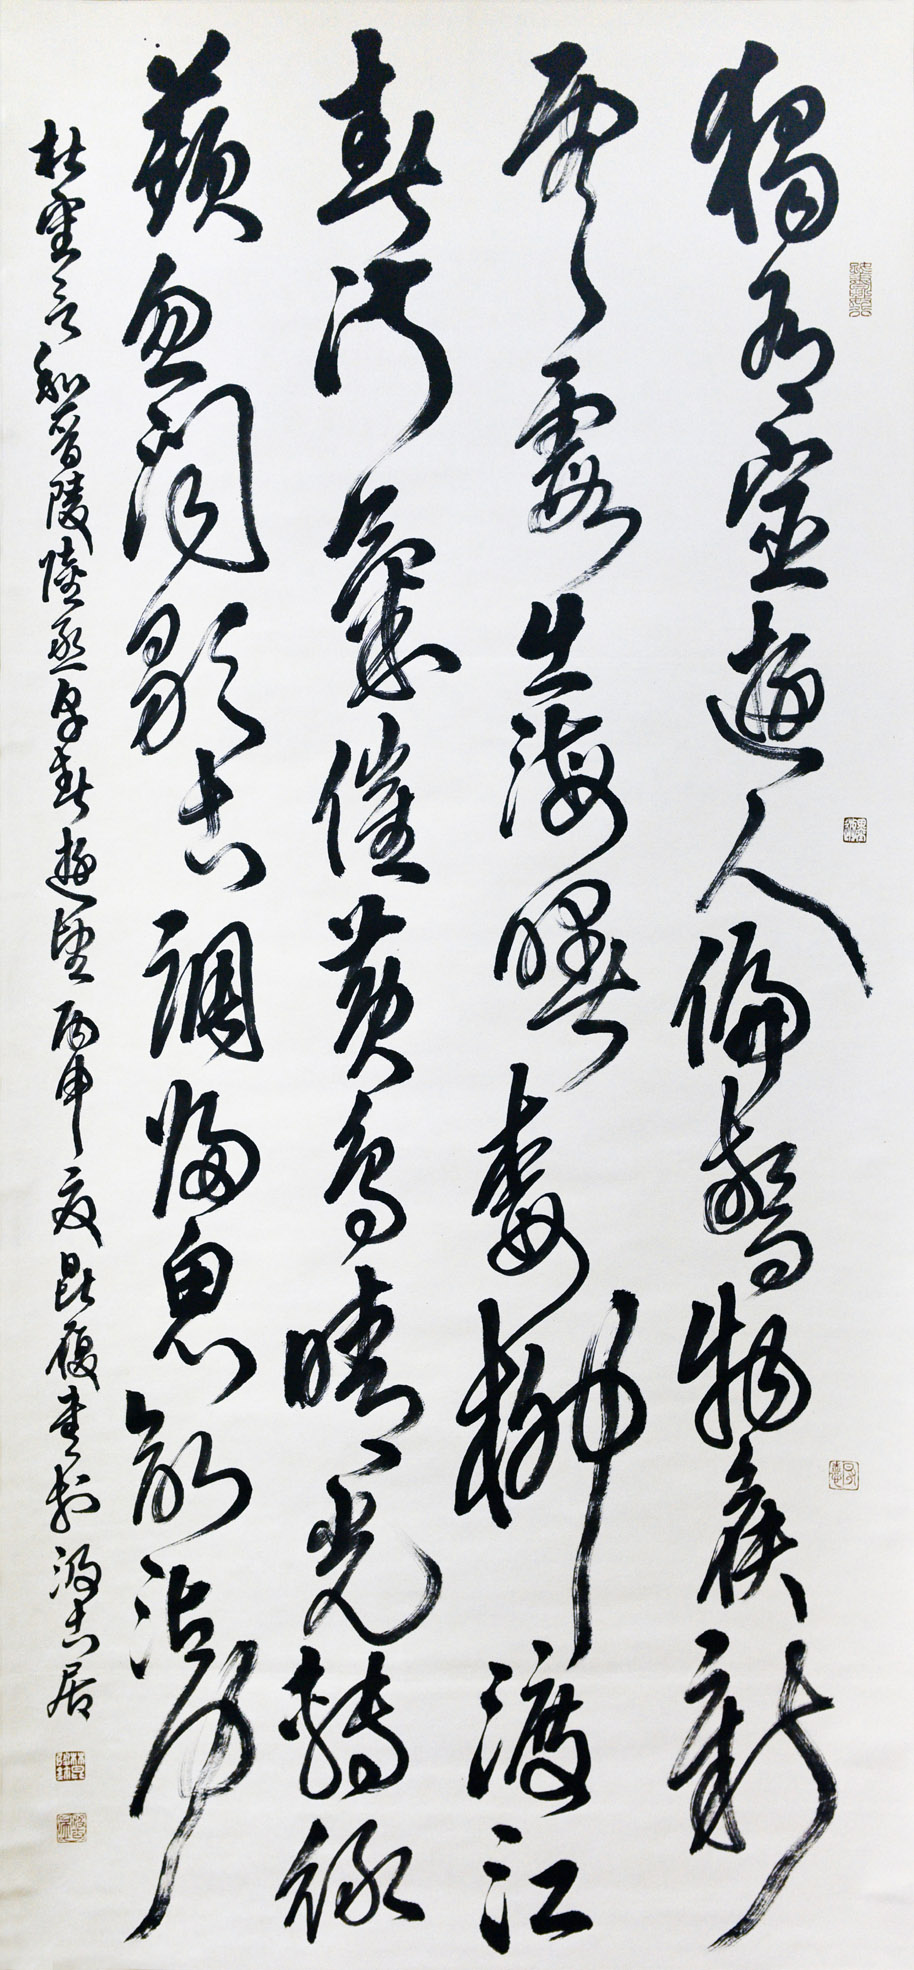 獨有宦遊人偏驚物候新
雲霞出海曙梅柳渡江
春淑氣催黃鳥晴光轉綠
蘋忽聞歌古調歸思欲沾巾
杜審言和晉陵陸丞早春遊望丙申夏昆書於汲古居